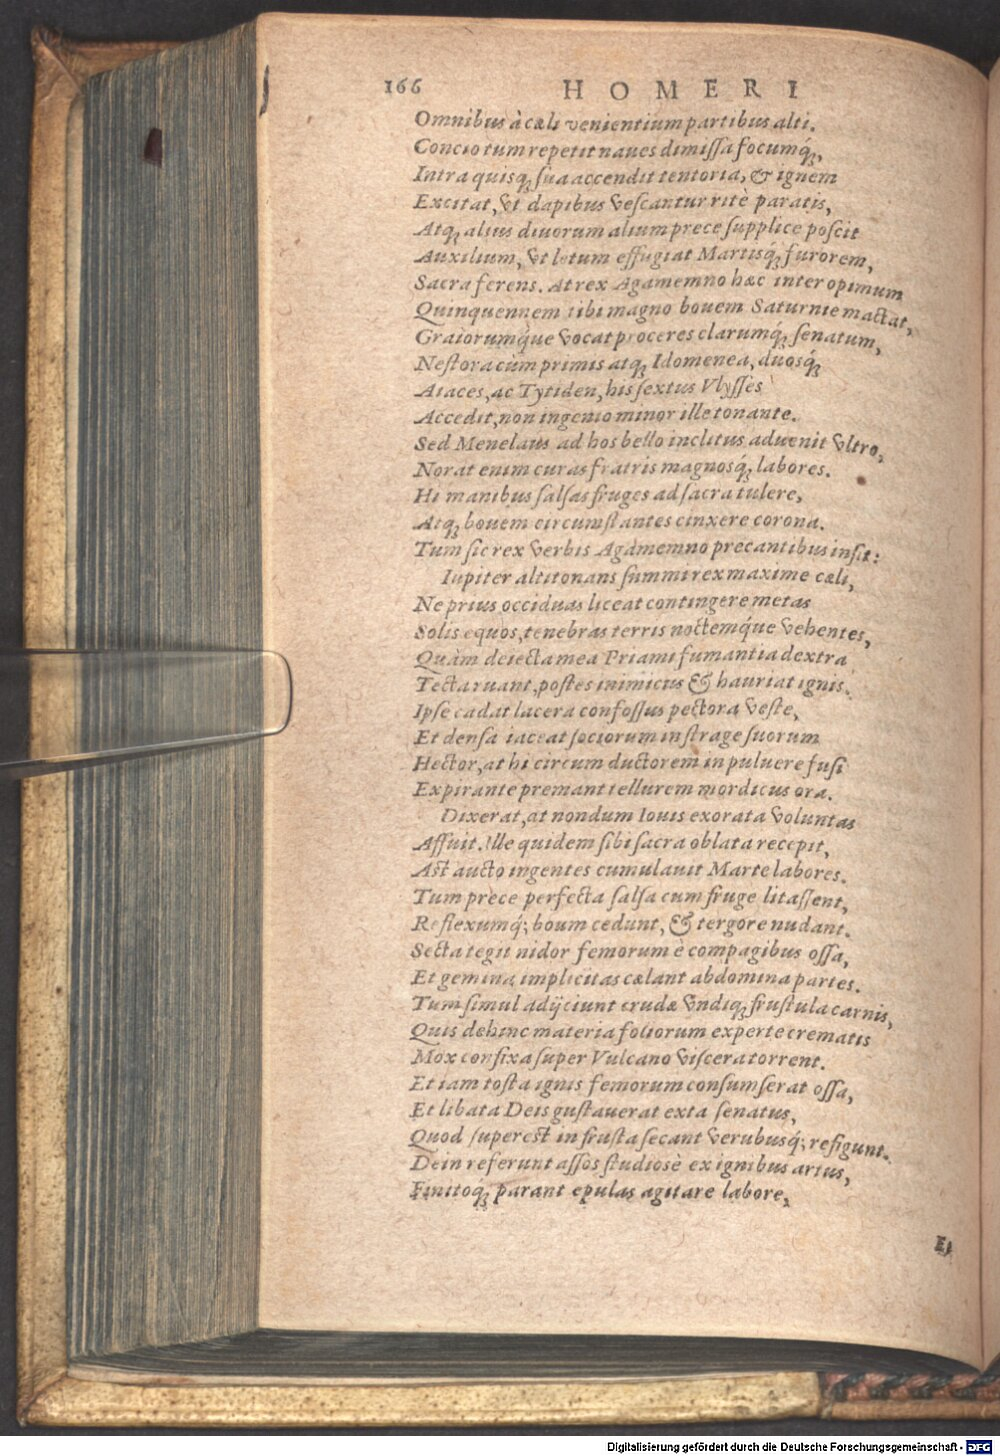 166 HOMERI
Omnibus à cæli venientium partibus alti.
Concio tum repetit naues dimissa focumq́;,
Intra quisq; sua accendit tentoria, & ignem
Excitat, vt dapibus vescantur ritè paratis,
Atq; alius diuorum alium prece supplice poscit
Auxilium, vt letum effugiat Martisq́; furorem,
Sacra ferens. At rex Agamemno hæc inter opimum
Quinquennem tibi magno bouem Saturnie mactat,
Graiorumq́ue vocat proceres clarumq́; senatum,
Nestora cùm primis atq; Idomenea, duosq́;
Aiaces, ac Tytiden, his sextus Vlysses
Accedit, non ingenio minor ille tonante.
Sed Menelaus ad hos bello inclitus aduenit vltro,
Norat enim curas fratris magnosq́; labores.
Hi manibus salsas fruges ad sacra tulere,
Atq; bouem circumstantes cinxere corona.
Tum sic rex verbis Agamemno precantibus insit:
Iupiter altitonans summi rex maxime cæli,
Ne prius occiduas liceat contingere metas
Solis equos, tenebras terris noctemq́ue vehentes,
Quàm deiecta mea Priami fumantia dextra
Tecta ruant, postes inimicus & hauriat ignis.
Ipse cadat lacera confossus pectora veste,
Et densa iaceat sociorum in strage suorum
Hector, at hi circum ductorem in puluere fusi
Expirante premant tellurem mordicus ora.
Dixerat, at nondum Iouis exorata voluntas
Affuit. Ille quidem sibi sacra oblata recepit,
Ast aucto ingentes cumulauit Marte labores.
Tum prece perfecta salsa cum fruge litassent,
Reflexumq́; boum cedunt, & tergore nudant.
Secta tegit nidor femorum è compagibus ossa,
Et gemina implicitas cælant abdomina partes.
Tum simul adijciunt crudæ vndiq; frustula carnis,
Quis dehinc materia foliorum experte crematis
Mox confixa super Vulcano viscera torrent.
Et iam tosta ignis femorum consumserat ossa,
Et libata Deis gustauerat exta senatus,
Quod superest in frusta secant verubusq́; refigunt.
Dein referunt assos studiosè ex ignibus artus,
Finitoq́; parant epulas agitare labore,
Digitalisierung gefördert durch die Deutsche Forschungsgemeinschaft - DFG